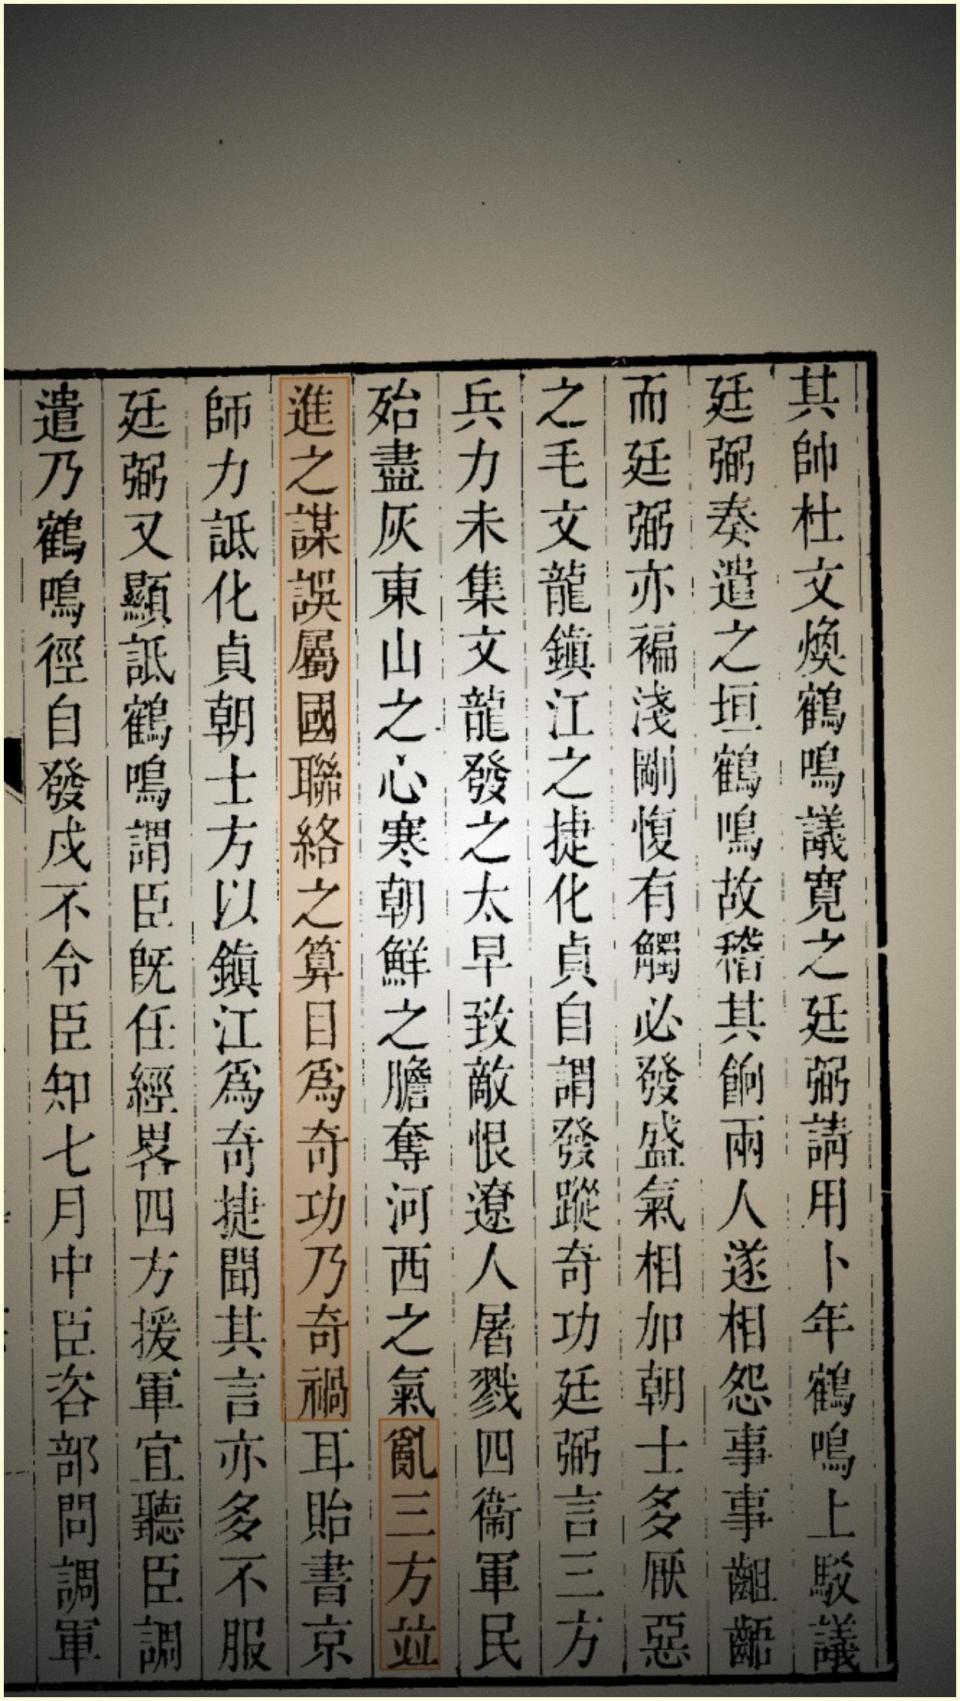 其帥杜文煥鶴鳴議寬之廷弼請用卜年鶴鳴上駁議
廷弼奏遣之垣鶴鳴故稽其餉兩人遂相怨事事齟齬
而廷弼亦褊淺剛愎有觸必發盛氣相加朝士多厭惡
之毛文龍鎮江之捷化貞自謂發蹤奇功廷弼言三方
兵力未集文龍發之太早致敵恨遼人屠戮四衞軍民
殆盡灰東山之心寒朝鮮之膽奪河西之氣亂三方並
進之謀誤屬國聯絡之算目爲奇功乃奇禍耳貽書京
師力詆化貞朝士方以鎮江爲奇捷聞其言亦多不服
廷弼又顯詆鶴鳴謂臣旣任經畧四方援軍宜聽臣調
遣乃鶴鳴徑自發戍不令臣知七月中臣咨部問調軍